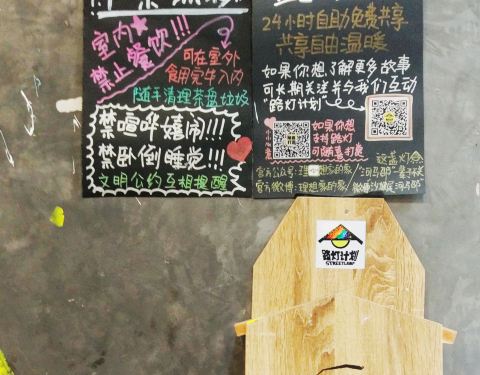 室内
禁止餐饮!!!
可在室外
食用完毕入内
随手清理茶盘垃圾
禁喧哗嬉闹!!!
禁卧倒睡觉!!!
文明公约互相提醒
24小时自助免费共享
共享自由温暖
如果你想了解更多故事
可长期关注并与我们互动
"路灯计划"
如果你想
支持路灯
可随喜打赏
这盏灯会
官方公众号:理想家的家/
官方微博:理想家的家/
路灯计划
STREETLAMP